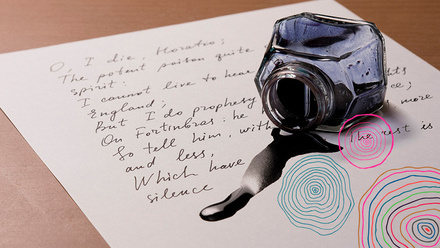 O, I die, Horatio;
The potent poison quite
spirit.
I cannot live to hear
England;
But I do prophesy
On Fortinbras: he h
So tell him, with more
and less,
Which have The rest is
silence